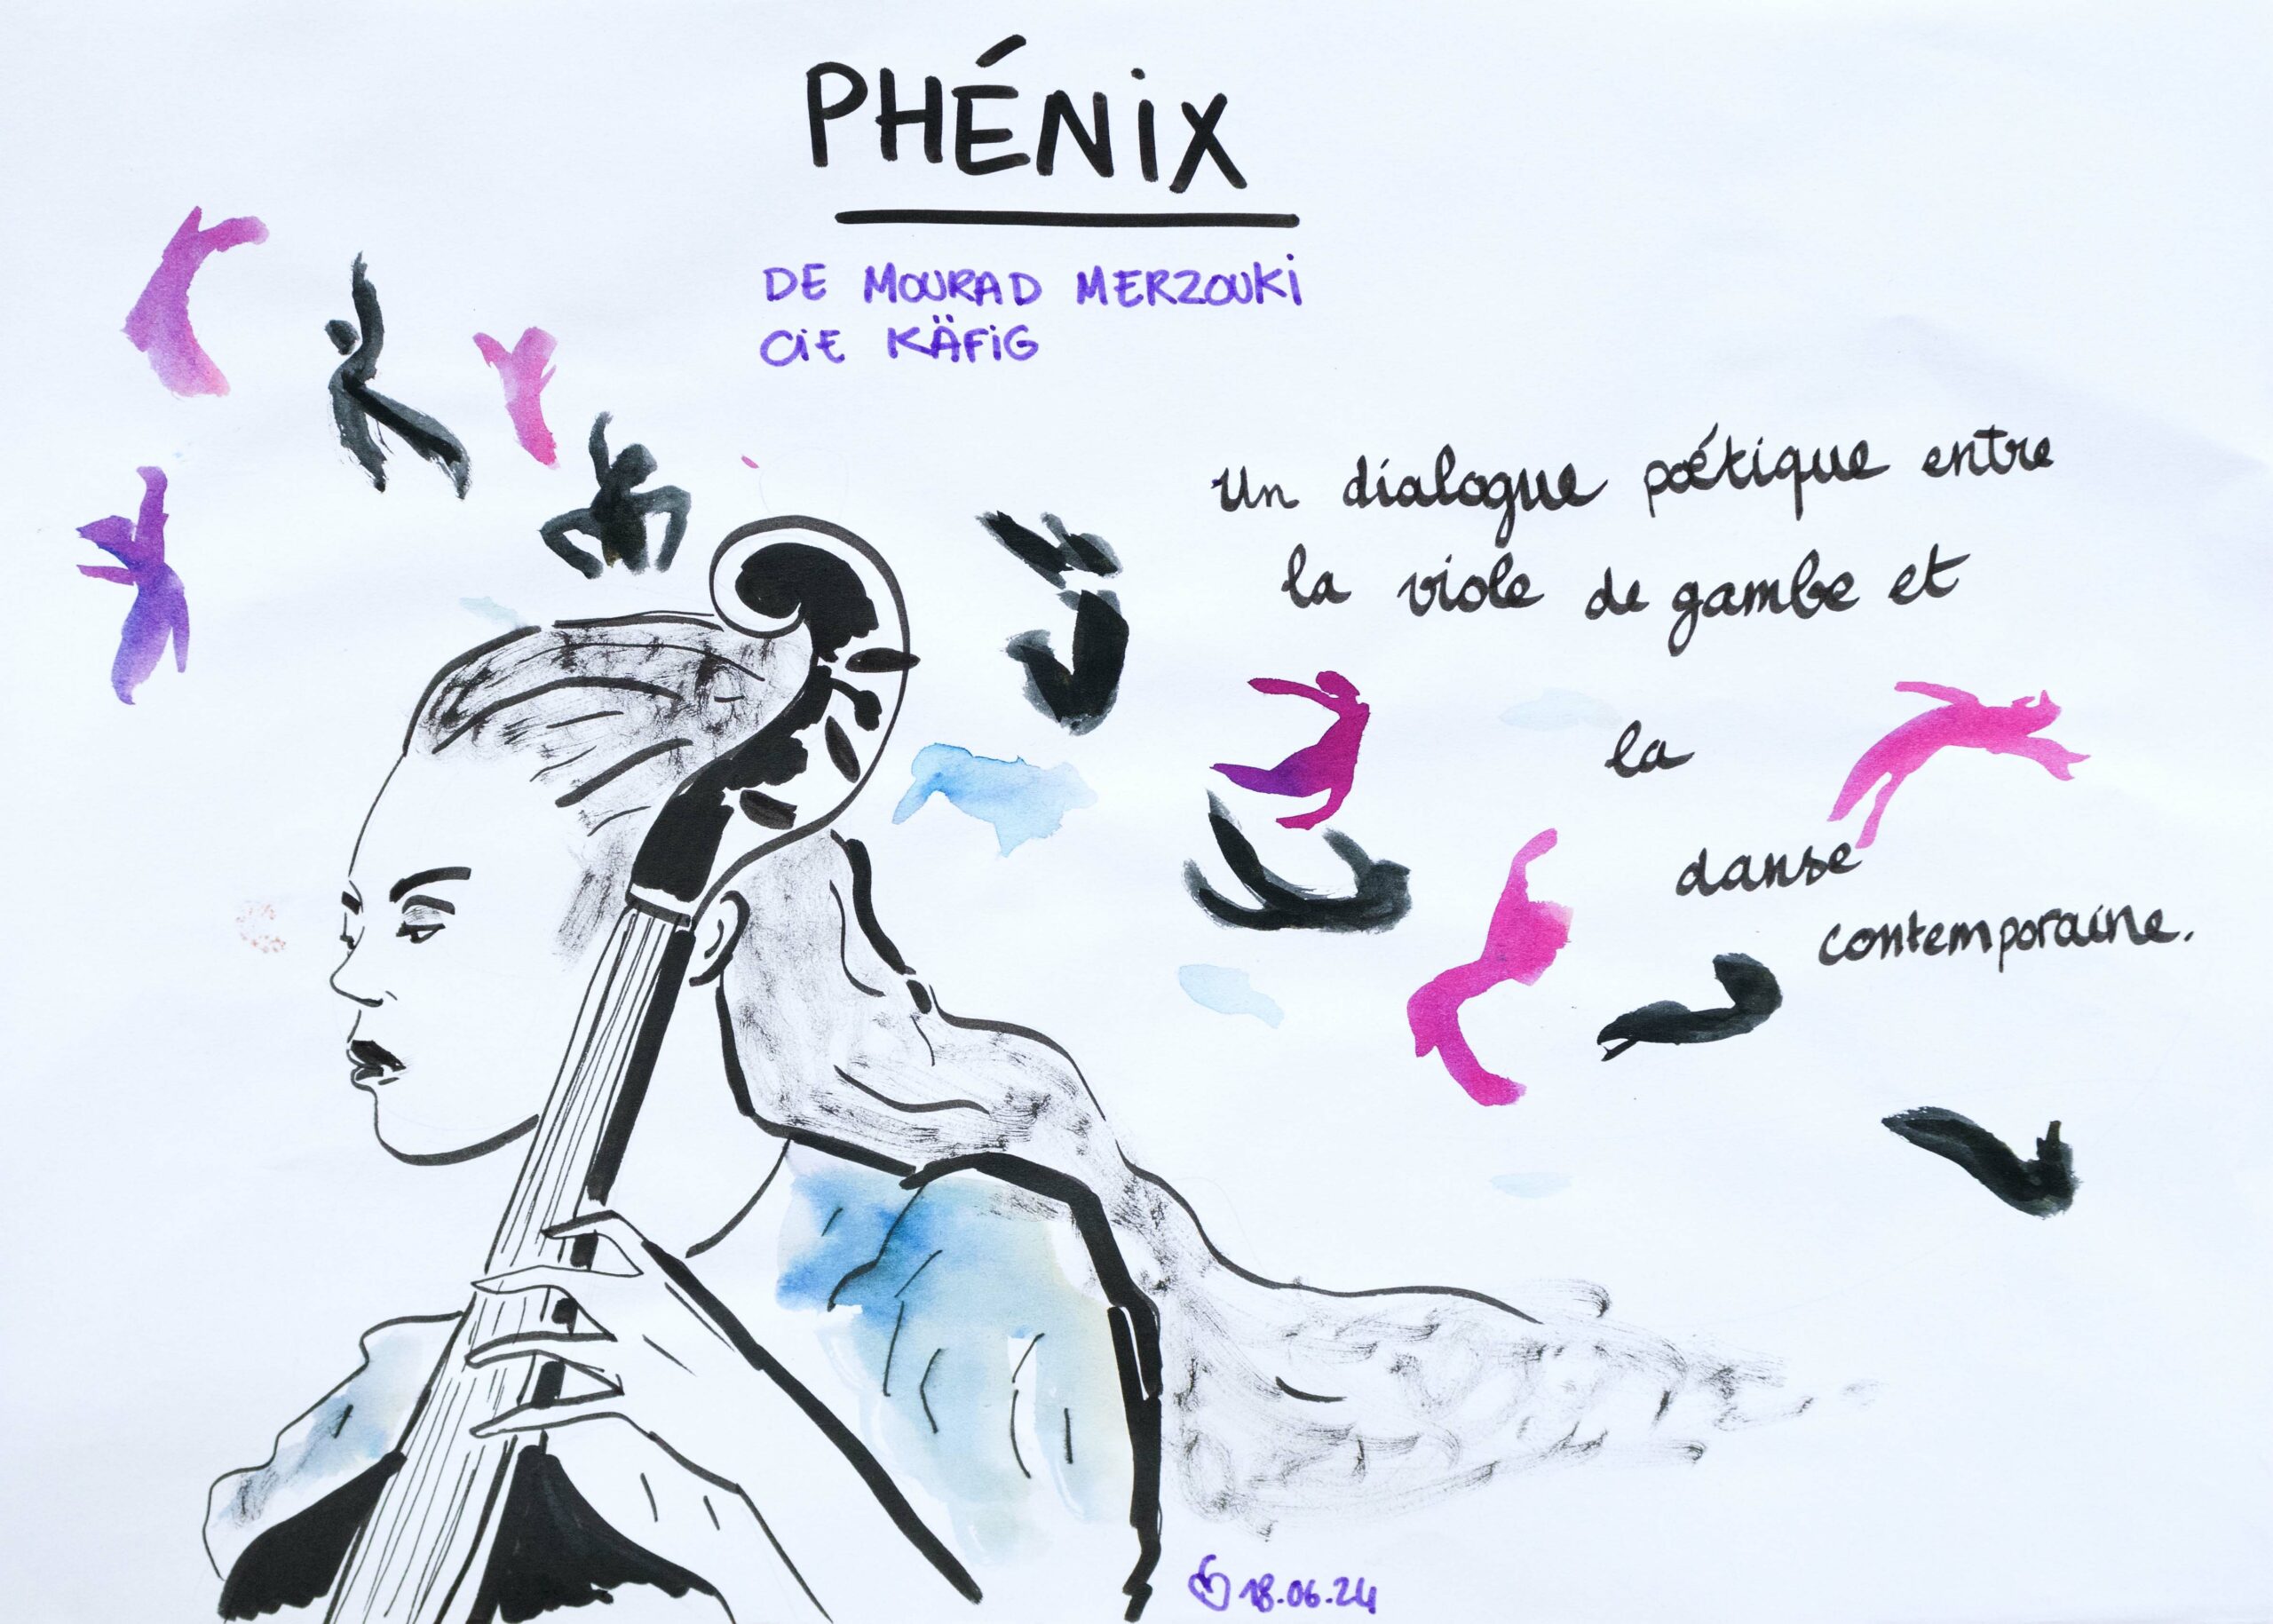 PHÉNiX
DE MOURAD MERZOUKi
CiE KÄFiG
Un dialogue poétique entre
la viole de gambe et
la
danse
contemporaine.
18.06.24